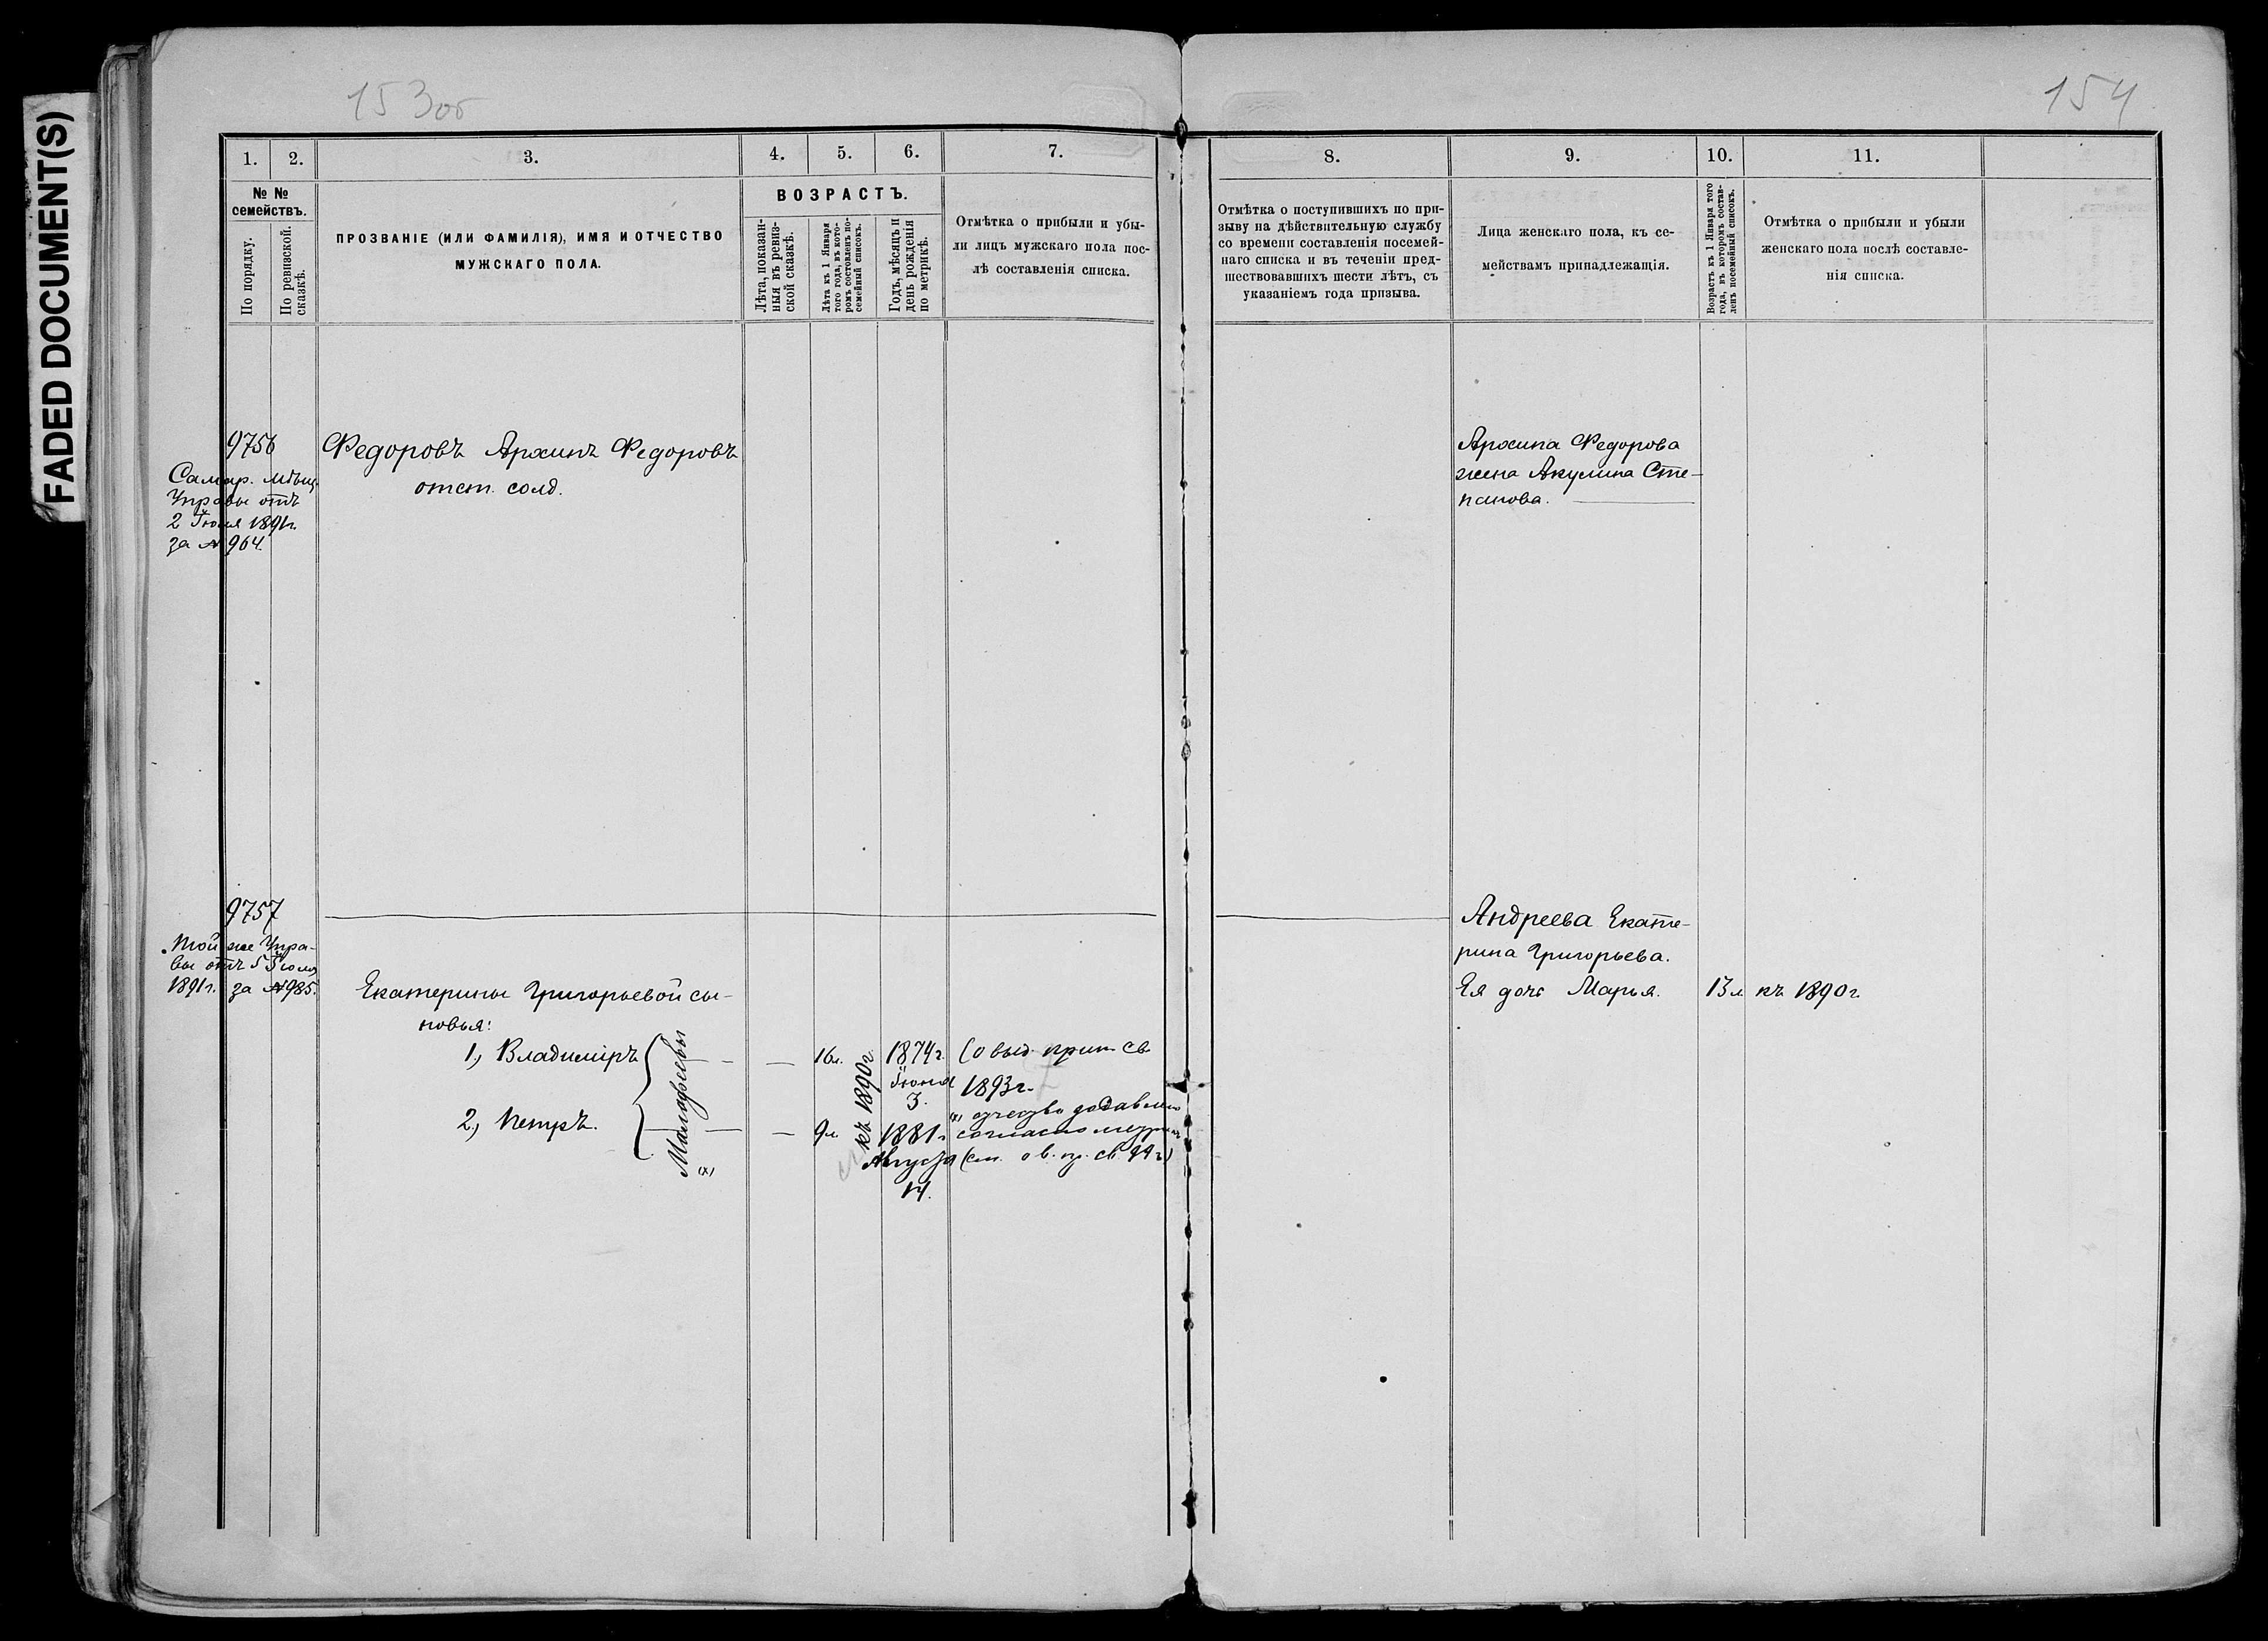 FADED DOCUMENT(S)
153об
154
1.
2.
3.
4.
5.
6.
7.
8.
9.
10.
11.
№ №
семействъ.
По порядку.
По ревизской
сказкѣ.
ПРОЗВАНІЕ (ИЛИ ФАМИЛІЯ), ИМЯ И ОТЧЕСТВО
МУЖСКАГО ПОЛА.
ВОЗРАСТЪ.
Лѣта, показан-
ныя въ ревиз-
ской сказкѣ.
Лѣта къ 1 Января
того года, въ кото-
ромъ составленъ по-
семейный списокъ.
Годъ, мѣсяцъ и
день рожденія
по метрикѣ.
Отмѣтка о прибыли и убы-
ли лицъ мужскаго пола пос-
лѣ составленія списка.
Отмѣтка о поступившихъ по при-
зыву на дѣйствительную службу
со времени составленія посемей-
наго списка и въ теченіи пред-
шествовавшихъ шести лѣтъ, съ
указаніемъ года призыва.
Лица женскаго пола, къ се-
мействамъ принадлежащія.
Возрастъ къ 1 Января того
года, въ которомъ состав-
ленъ посемейный списокъ.
Отмѣтка о прибыли и убыли
женскаго пола послѣ составле-
нія списка.
9756
Самар. Мѣщ.
Управы отъ
2 Іюля 1891г.
за № 964.
Федоровъ Архипъ Федоровъ
отст. солд.
Архипа Федорова
жена Акулина Сте-
панова.
9757
Той же Упра-
вы отъ 5 Іюля
1891г. за № 985.
Екатерины Григорьевой сы-
новья:
1, Владиміръ
2, Петръ.
Малофеевы
(х)
16л.
9л.
къ 1890г.
1874г.
Іюля
3.
1881г.
Августа
14.
(о выд. прип. св.
1893г.
(х) отчество добавлено
согласно метрик
(см. о в. пр. св. 99 г)
Андреева Екате-
рина Григорьева.
Ея дочь Марья.
13л
къ 1890г.